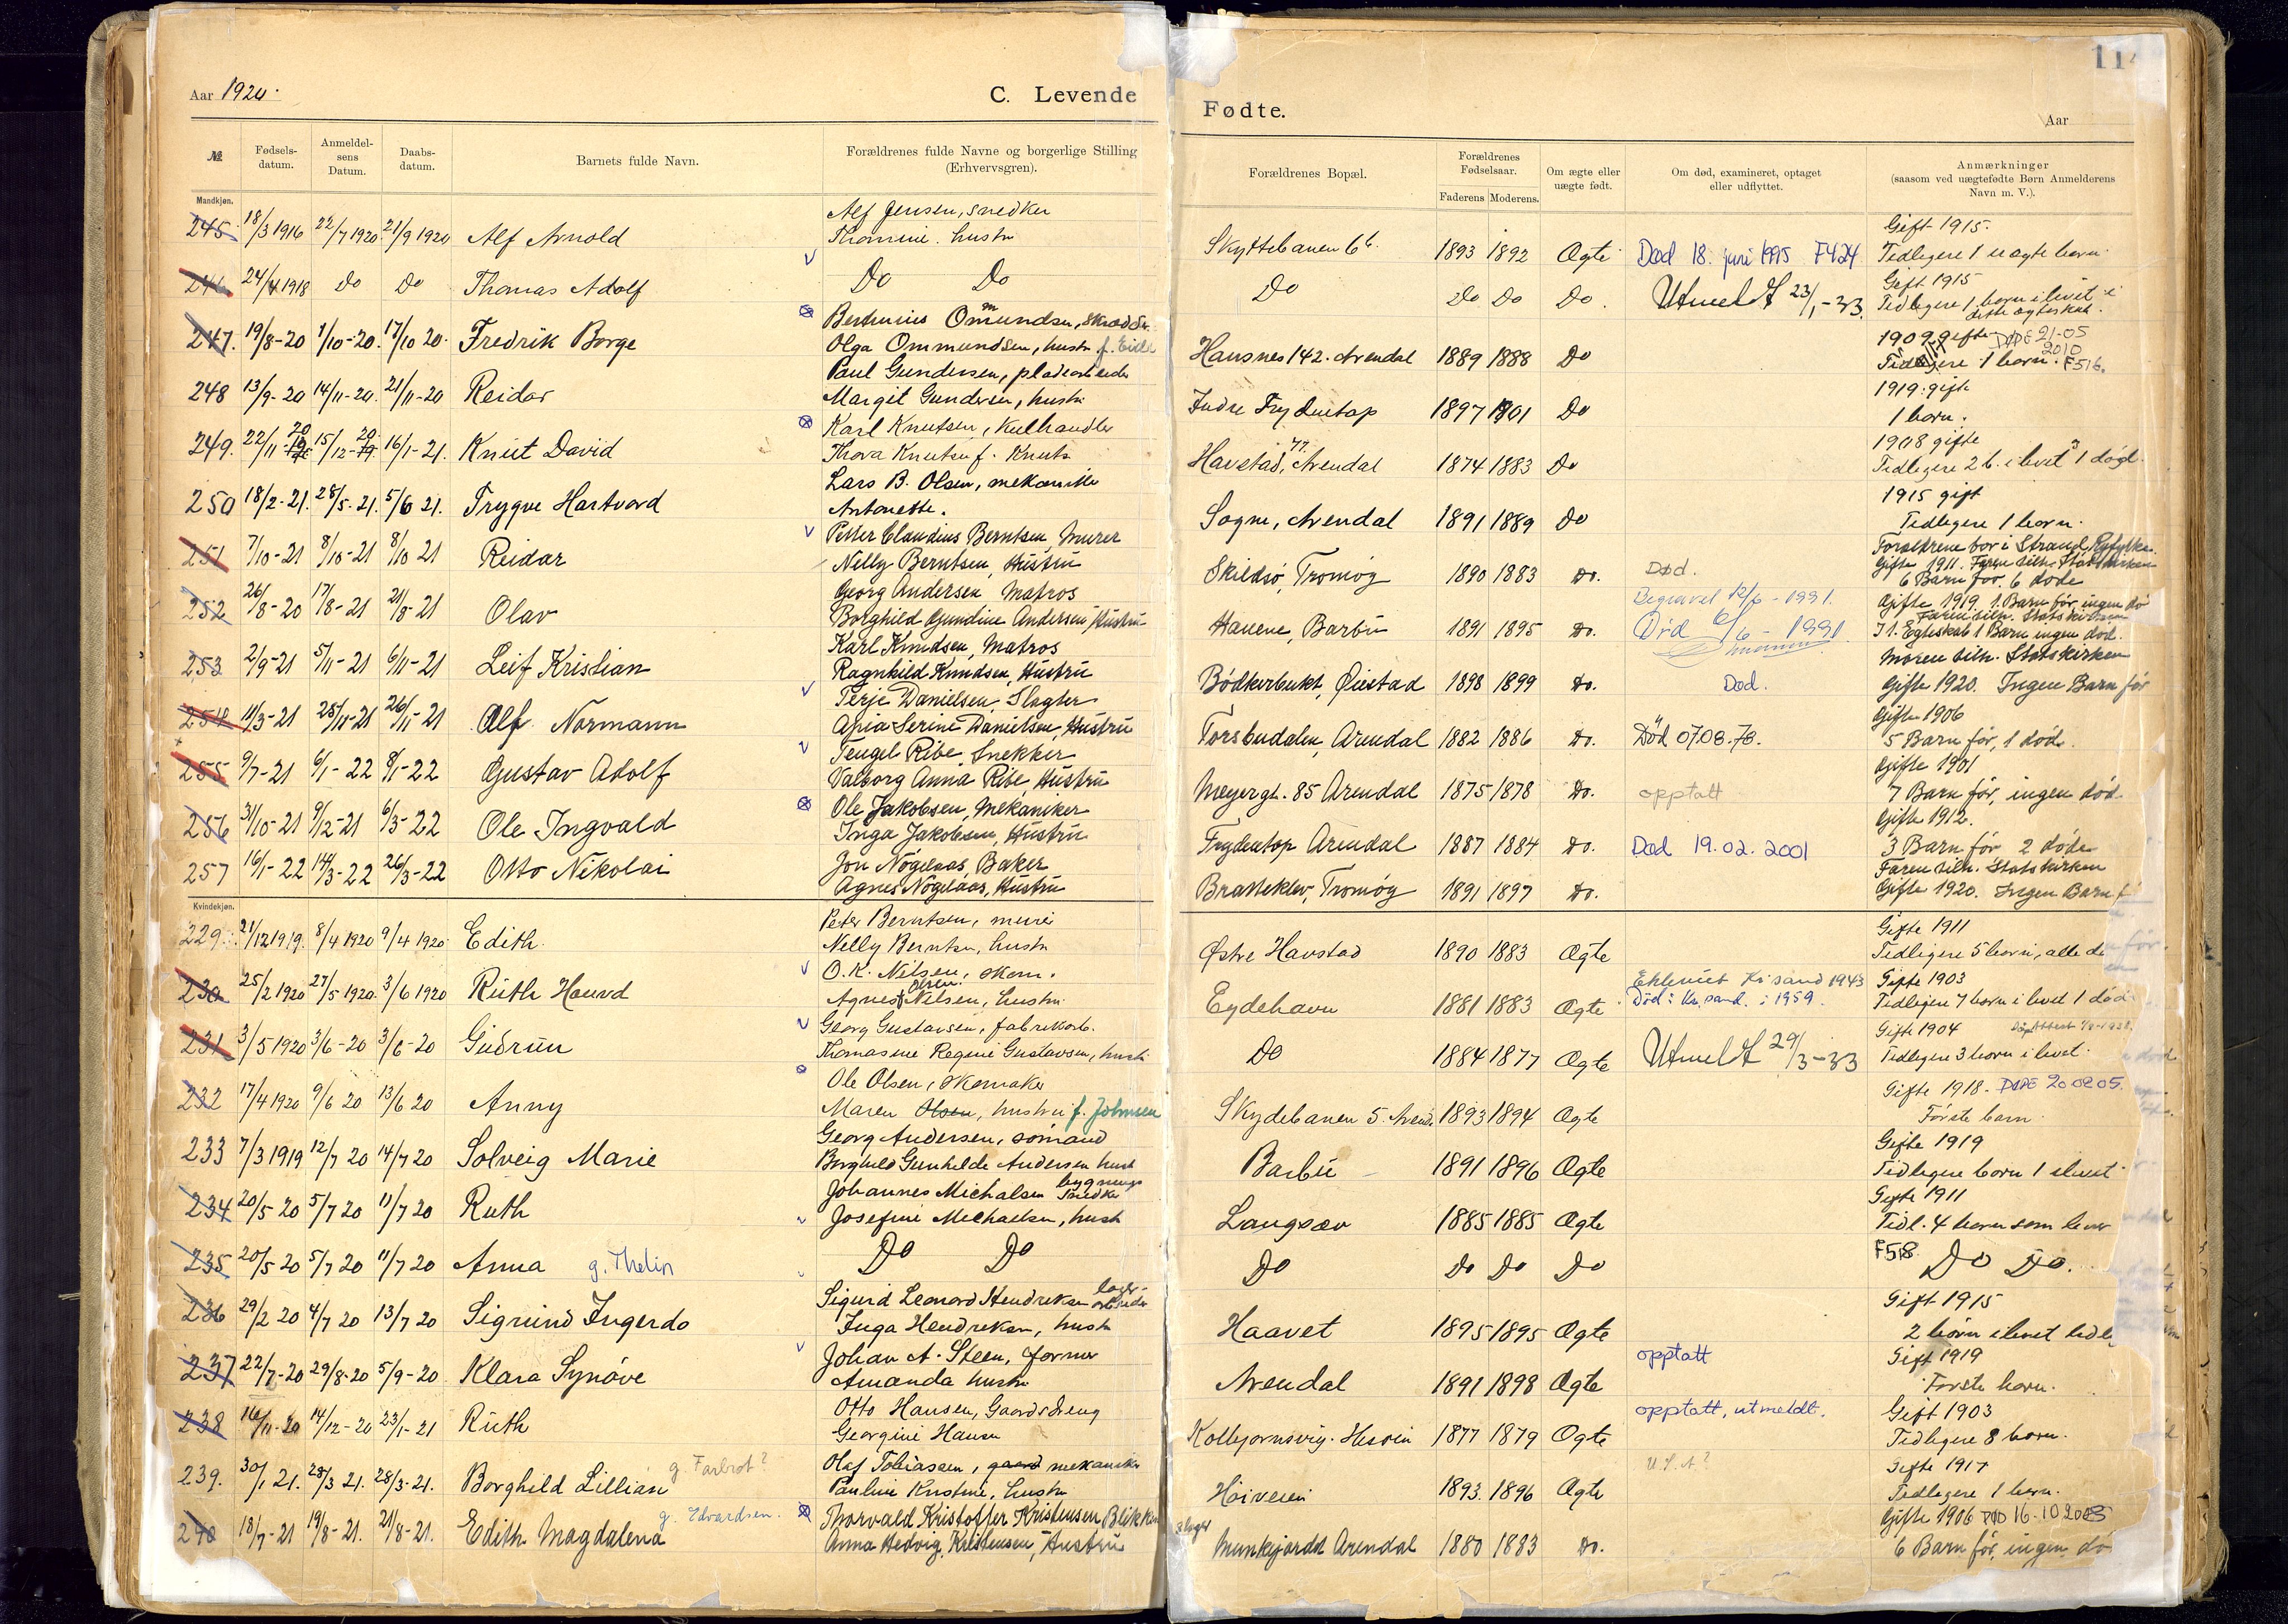 Aar 1920.
C. Levende
Fødte.
114
Aar
№
Fødsels-datum.
Anmeldel-sens Datum.
Daabs-datum.
Barnets fulde Navn.
Forældrenes fulde Navne og borgerlige Stilling (Erhvervsgren).
Forældrenes Bopæl.
Forældrenes Fødselsaar.
Faderens
Moderens.
Om ægte eller uægte født.
Om død, examineret, optaget eller udflyttet.
Anmærkninger (saasom ved uægtefødte Børn Anmelderens Navn m. V.).
Mandkjøn.
245 18/3 1916 22/7 1920 21/9 1920 Alf Arnold
Alf Jensen, snedker
Thomine. hustru
Skyttebanen 66 1893 1892 Ægte Død 18. juni 1995 F424
Gift 1915.
Tidligere 1 uægte barn.
246 24/4 1918 Do Do Thomas Adolf
Do Do
Do Do Do Do. Utmeldt 23/1-33.
Gift 1915
Tidligere 1 barn i livet i dette ægteskab.
247. 19/8-20 1/10-20. 17/10 20. Fredrik Borge
Berthinius Omundsen, Skrædder
Olga Ommundsen, hustr. f. Eide
Hausnes 142. Arendal 1889 1888 Do
1909 gifte DØDE 21-05 2010
Tidligere 1 barn. F516.
248 13/9-20 14/11-20. 21/11-20 Reidar
Paul Gundersen, pladearbeider
Margit Gundersen, hustr.
Indre Frydentop 1897 1901 Do
1919. gift
1 barn.
249. 22/11-20 15/12-20 16/1-21. Knut David
Karl Knutsen, Kulhandler
Thora Knutsen f. Knuts
Havstad, Arendal 1874 1883 Do
1908 gifte
Tidligere 2 b. i livet 1 død.
250 18/2-21. 28/5-21. 5/6 21. Trygve Hartvard
Lars B. Olsen, mekaniker
Antonette.
Sogne, Arendal 1891 1889 Do
1915 gift
Tidligere 1 barn.
251 7/10-21 8/10-21 8/10 21 Reidar
Petter Claudius Berntsen, Murer
Nelly Berntsen, Hustru
Skilsø, Tromøy 1890 1883 Do. Død.
Foreldrene bor i Strand, Ryfylke.
Gifte 1911. Faren tilh. Statskirken
6 Barn før, 6 døde
252 26/8-20 17/8-21 21/8-21 Olav
Georg Andersen Matros
Borghild Gundine Andersen, Hustru
Hauene, Barbu 1891 1895 Do. Begravet 12/6-1991.
Død 6/6-1991.
Gifte 1919. 1. Barn før, ingen dø
Faren tilh. Statskirken
253 2/9-21 5/11-21 6/11-21 Leif Kristian
Karl Knudsen, Matros
Ragnhild Knudsen, Hustru
Bødkerbukt, Øiestad 1898 1899 Do. Død.
I 1. Egteskab 1 Barn ingen død.
Moren tilh. Statskirken
Gifte 1920. Ingen Barn før
254 11/3-21 25/11-21 26/11-21 Alf Normann
Terje Danielsen, Slagter
Serine Danielsen, Hustru
Torsbudalen, Arendal 1882 1886 Do. Død 07.08.78.
Gifte 1906
5 Barn før, 1 død.
255 9/7-21 6/1-22 8/1-22 Gustav Adolf
Tengel Ribe, Snekker
Valborg Anna Ribe, Hustru
Meyergt. 85 Arendal 1875 1878 Do. opptatt
Gifte 1901
7 Barn før, ingen død.
256 31/10-21 9/12-21 6/3-22 Ole Ingvald
Ole Jakobsen, Mekaniker
Inga Jakobsen, Hustru
Frydentop Arendal 1887 1884 Do. Død 19.02.2001
Gifte 1912.
3 Barn før 2 døde
257 16/1-22 14/3-22 26/3-22 Otto Nikolai
Jon Nøgelaas, Baker
Agnes Nøgelaas, Hustru
Bratteklev, Tromøy 1891 1897 Do.
Faren tilh. Statskirken
Gifte 1920. Ingen Barn f
Kvindekjøn.
229. 21/12 1919. 8/4 1920 9/4 1920. Edith.
Peter Berntsen, murer
Nelly Berntsen, hustr
Østre Havstad 1890 1883 Ægte
Gifte 1911
Tidligere 5 barn, alle dø
230 25/2 1920 27/5 1920. 3/6 1920 Ruth Houvd
O. K. Nilsen, skom.
Agnes Nilsen, hustru
Olsen
Eydehavn 1881 1883 Ægte Død i Kr.sand. i 1959.
Gifte 1903
Tidligere 7 barn i livet 1 død
231 3/5 1920 3/6-20 3/6-20 Gudrun
Georg Gustavsen, fabrikarb.
Thomasine Regine Gustavsen, hustr.
Do 1884 1877 Ægte Utmeldt 29/3-33
Gifte 1904
Tidligere 3 barn i livet.
232 17/4 1920 9/6 20 13/6 20 Anny
Ole Olsen, skomaker
Maren Olsen, hustru f. Johnsen
Skydebanen 5. Arendal 1893 1894 Ægte
Gifte 1918. DØDE 20 02 05.
Første barn.
233 7/3 1919 12/7 20 14/7 20 Solveig Marie
Georg Andersen, sømand
Borghild Gunhilde Andersen hust
Barbu 1891 1896 Ægte
Gifte 1919
Tidligere barn 1 i livet
234 20/5 20 5/7 20 11/7 20 Ruth
Johannes Michalsen bygnings snedker
Josefine Michaelsen, hustr
Langsæv 1885 1885 Ægte
Gifte 1911
Tidl. 4 barn som lever
235 20/5 20 5/7 20 11/7 20 Anna g. Thelin
Do Do
Do Do Do Do
F518. Do Do.
236 29/2 20 4/7 20 13/7 20 Sigrund Ingerdo
Sigurd Leonard Hendriksen lagerarbeider
Inga Hendriksen, hustr
Haavet 1895 1895 Ægte
Gift 1915
2 barn i livet tidl.
237 22/7-20 29/8-20 5/9-20 Klara Synøve
Johan A. Steen, former
Amanda hustr.
Arendal 1891 1898 Ægte opptatt
Gift 1919
Første barn.
238 16/11-20 14/12-20 23/1-21 Ruth
Otto Hansen, Gaardsdreng
Georgine Hansen
Kolbjørnsvig. Hisøien 1877 1879 Ægte opptatt, utmeldt.
Gift 1903
Tidligere 8 barn.
239. 30/1 21. 28/3 21. 28/3-21. Borghild Lillian g. Farbrot?
Olaf Tobiassen, gaard mekaniker
Pauline Kristine, hustr
Høiveien 1893. 1896 Ægte U.S.A?
Gifte 1917
Tidligere 1 barn.
240 18/7-21 19/8-21. 21/8-21. Edith Magdalena g. Edvardsen.
Thorvald Kristoffer Kristensen, Blikkenslager
Anna Hedvig Kristensen, Hustru
Munkejordet Arendal 1880 1883 Do.
Gifte 1906 DØD 16.10 2003
6 Barn før, ingen dø